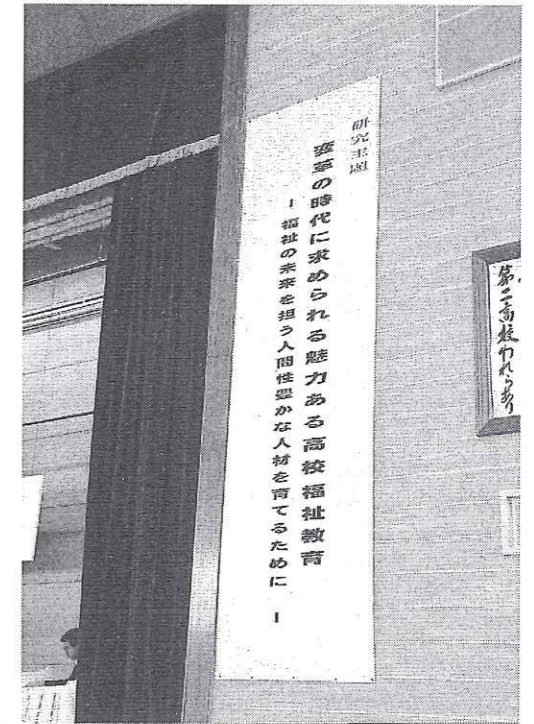 研究主題
変革の時代に求められる魅力ある高校福祉教育
ー福祉の未来を担う人間性豊かな人材を育てるためにー
第二高校われらあり